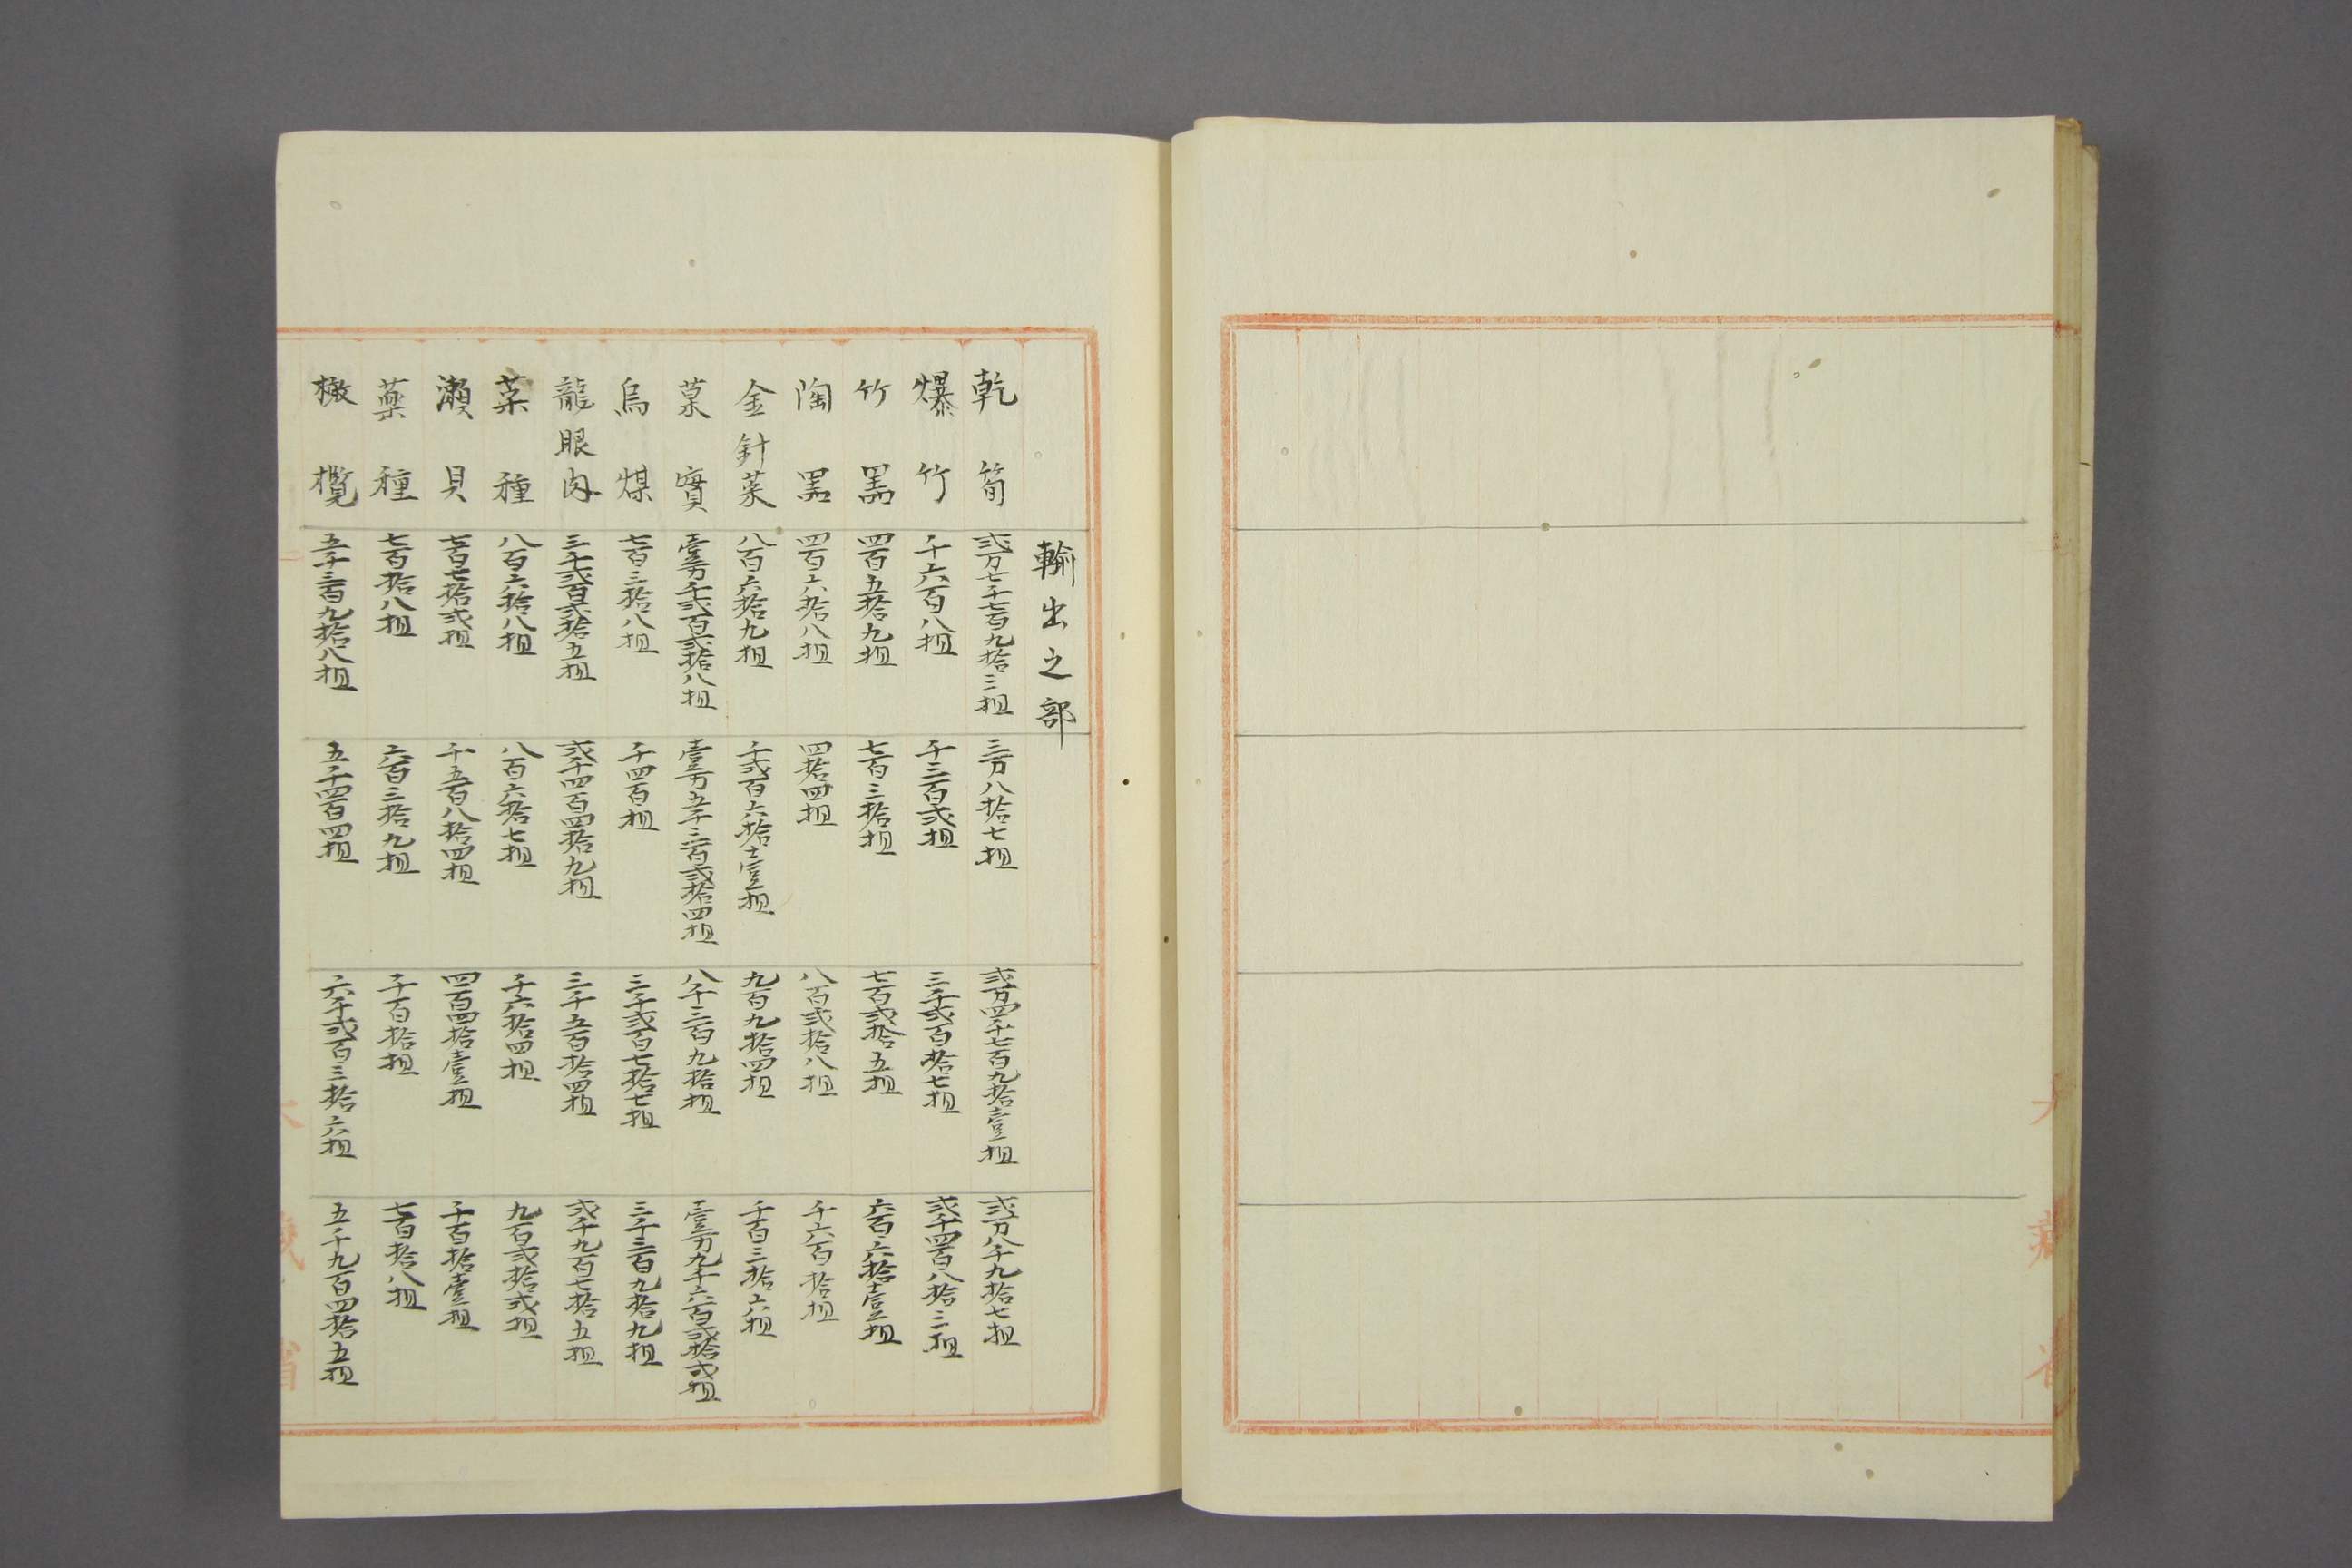 輸出之部
乾筍 弐万七千七百九拾三担 三万八拾七担 弐万四千七百九拾壹担 弐万八千九拾七担
爆竹 千六百八担 千三百弐担 三千弐百拾七担 弐千四百八拾三担
竹器 四百五拾九担 七百三拾担 七百弐拾五担 六百六拾壹担
陶器 四百六拾八担 四拾四担 八百弐拾八担 千六百拾担
金針菜 八百六拾九担 千弐百六拾壹担 九百九拾四担 千百三拾六担
菓實 壹万千弐百弐拾八担 壹万五千三百弐拾四担 八千三百九拾担 壹万九千六百弐拾弐担
烏煤 七百三拾八担 千四百担 三千弐百七拾七担 三千三百九拾九担
龍眼肉 三千弐百弐拾五担 弐千四百四拾九担 三千五百拾四担 弐千九百七拾五担
菜種 八百六拾八担 八百六拾七担 千六拾四担 九百弐拾弐担
瀬貝 七百七拾弐担 千五百八拾四担 四百四拾壹担 千百拾壹担
薬種 七百拾八担 六百三拾九担 千百拾担 七百拾八担
橄欖 五千三百九拾八担 五千四百四担 六千弐百三拾六担 五千九百四拾五担
大藏省